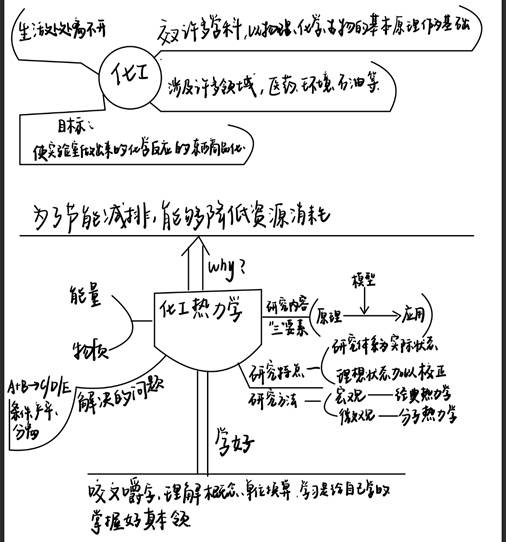 生活处处离不开
交叉许多学科,以物理、化学、生物的基本原理作为基础
化工
涉及许多领域,医药、环境、石油等
目标:
使实验室做出来的化学反应的东西商品化.
为了节能减排,能够降低资源消耗
why?
能量
物质
化工热力学
研究内容
"三"要素
模型
原理
应用
研究特点
研究体系为实际状态
理想状态加以校正
研究方法
宏观—经典热力学
微观—分子热力学
解决的问题
A+B→C/D/E
条件、产率、
分离
学好
咬文嚼字,理解概念、单位换算 学习是给自己学的
掌握好真本领